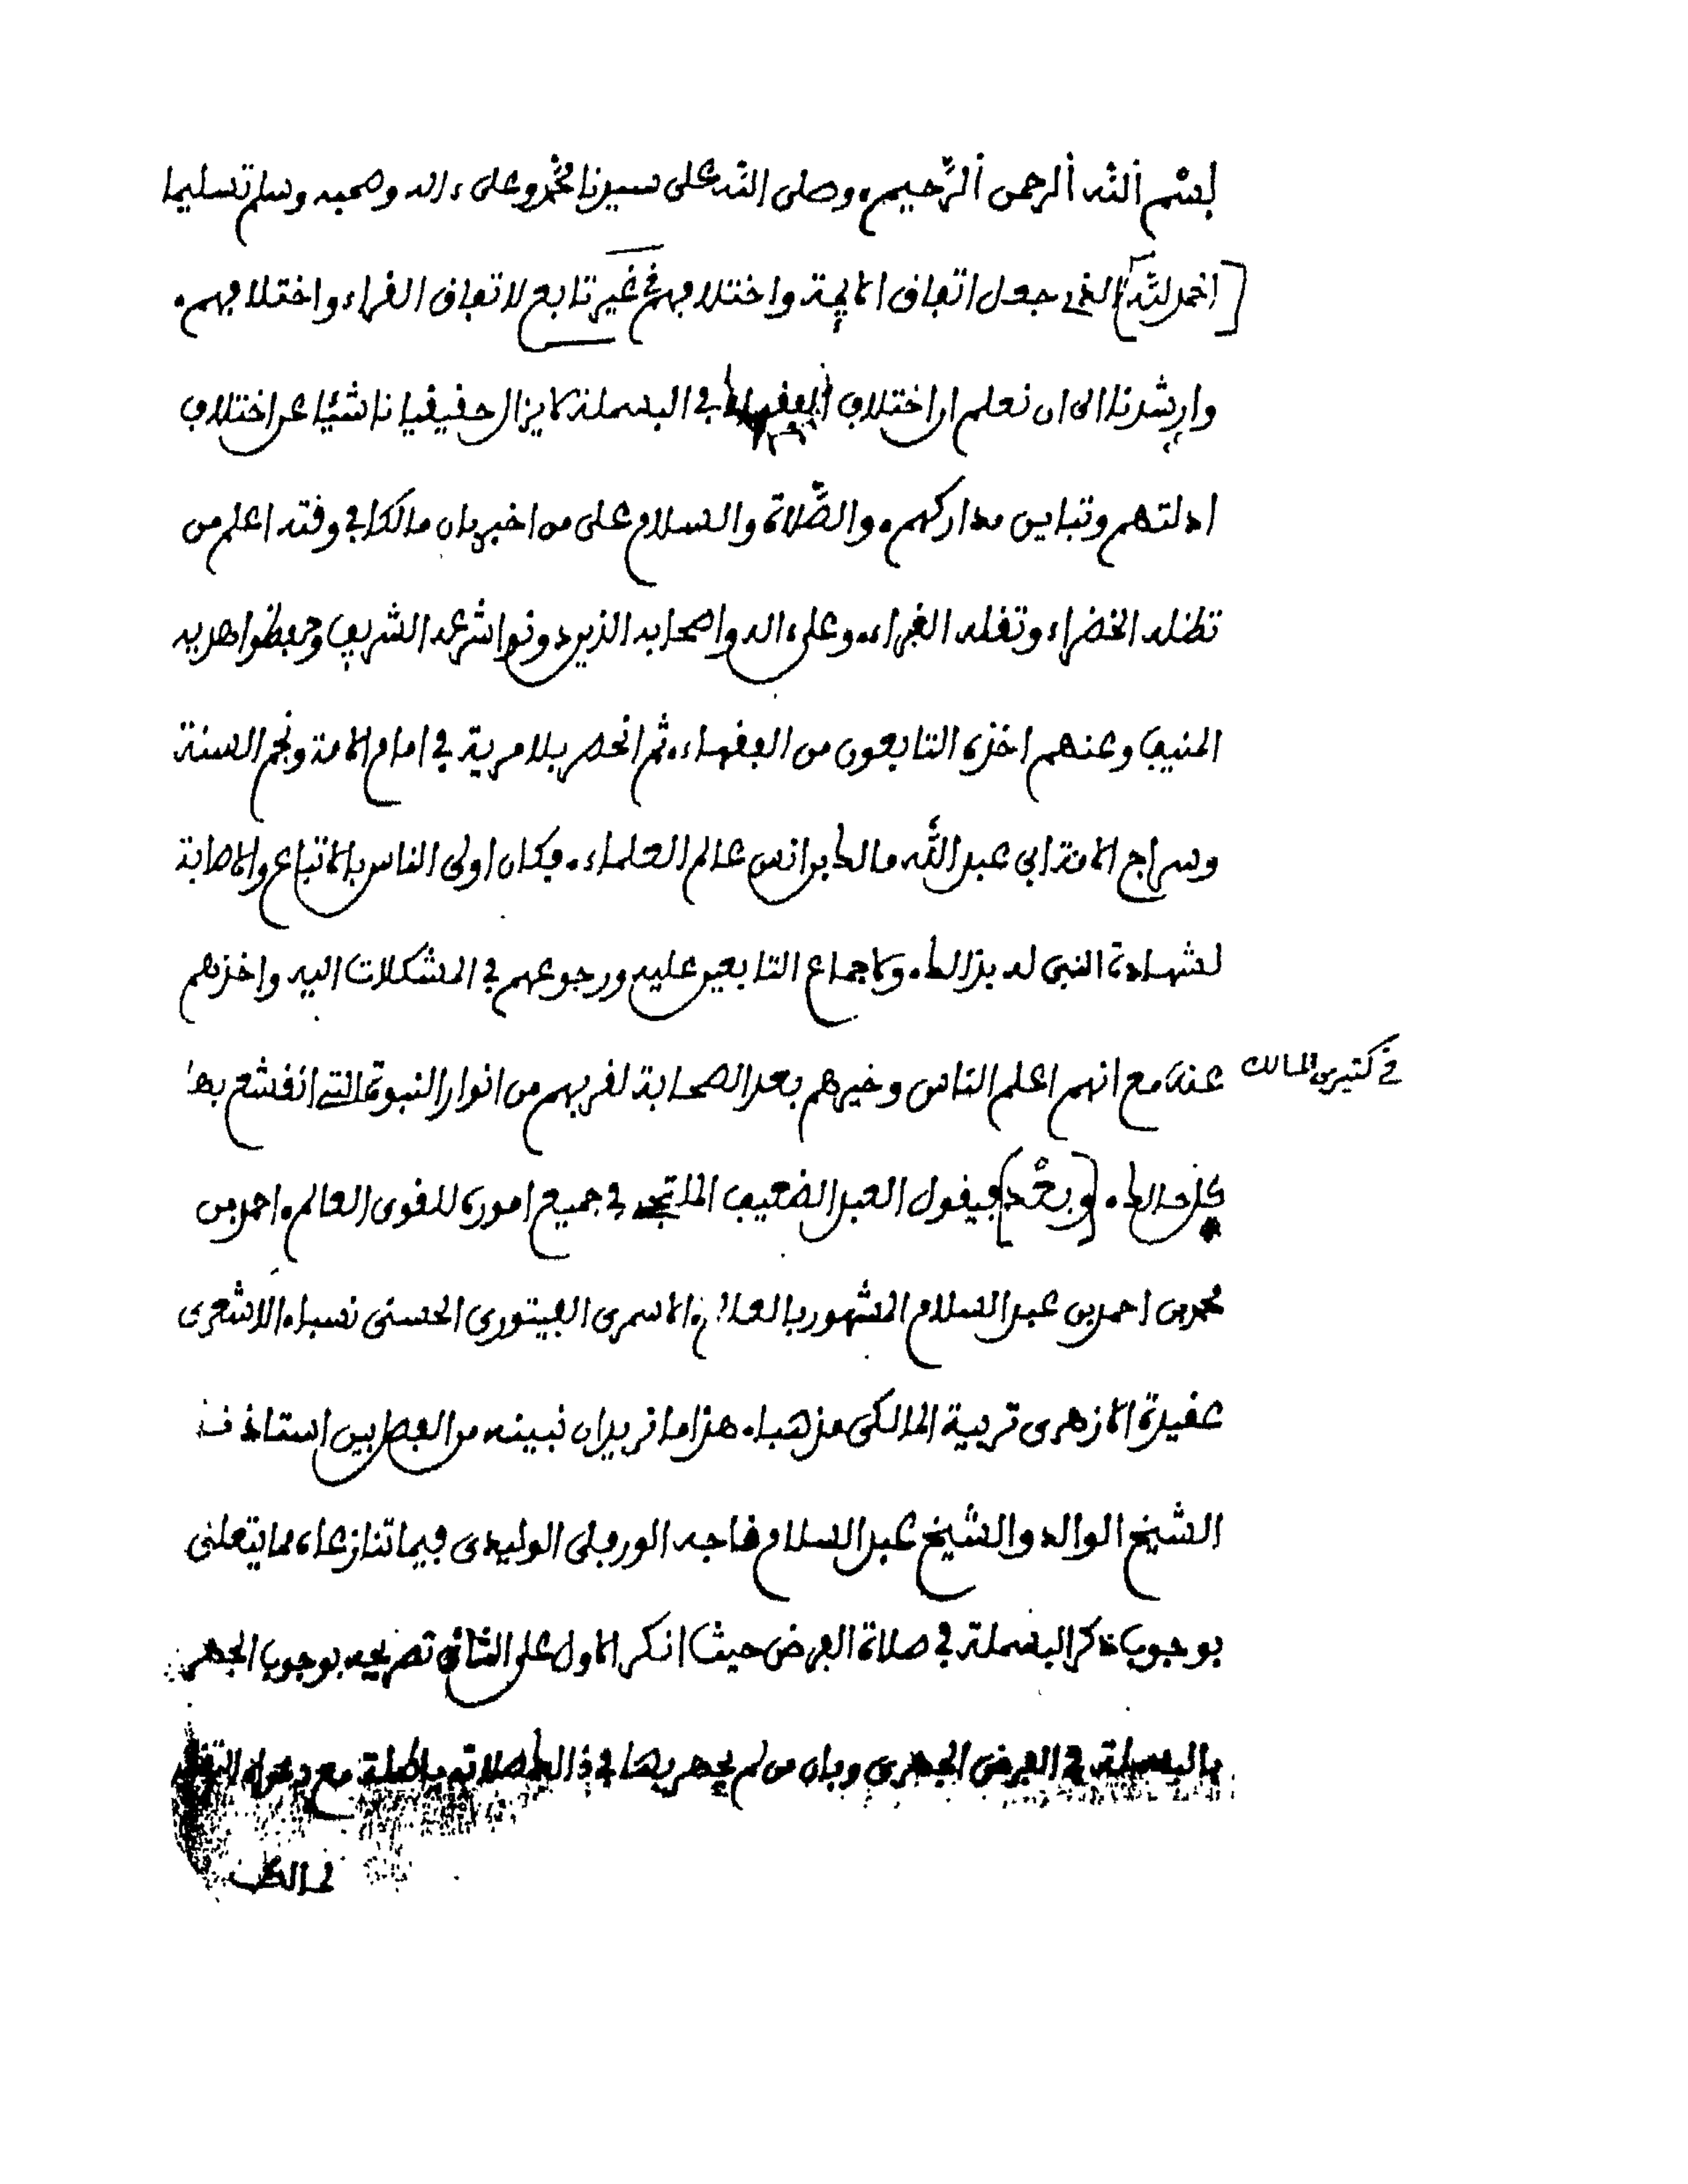 بسم الله الرحمن الرحيم. وصلى الله على سيدنا محمد وعلى ءاله وصحبه وسلم تسليما
[الحمد لله] الذى جعل اتفاق الايمة واختلافهم غير تابع لاتفاق القراء واختلافهم.
وارشدنا الى ان نعلم ان اختلاف الفقهاء فى البسملة لا يزال حقيقيا ناشئا عن اختلاف
ادلتهم وتباين مداركهم. والصلاة والسلام على من اخبر بان مالكا فى وقته اعلم من
تظله الخضراء وتقله الغبراء. وعلى ءاله واصحابه الذين دونوا شرعه الشريف وحفظوا هديه
المنيف وعنهم اخذه التابعون من الفقهاء. ثم انحصر بلا مرية فى امام الائمة ونجم السنة
وسراج الامة ابى عبد الله مالك بن انس عالم العلماء. فكان اولى الناس بالاتباع والاصابة
لشهادة النبى له بذالك. ولاجماع التابعين عليه ورجوعهم فى المشكلات اليه واخذهم
عنه مع انهم اعلم الناس وخيرهم بعد الصحابة لقربهم من انوار النبوة التى انقشع بها
فى كثير من المسالك
كل حالك. [وبعد] فيقول العبد الضعيف الملتجئ فى جميع اموره للقوى العالم. احمد بن
محمد بن احمد بن عبد السلام المشهور بالعالم. الاسمرى الفيتورى الحسنى نسبا. الاشعرى
عقيدة الازهرى تربية المالكى مذهبا. هذا ما نريد ان نبينه من الفصل بين استاذنا
الشيخ الوالد والشيخ عبد السلام قاجه الورفلى الوليدى فيما تنازعاه مما يتعلق
بوجوب ذكر البسملة فى صلاة الفرض حيث انكر الاول على الثانى تصريحه بوجوب الجهر
بالبسملة فى الفرض الجهرى وبان من لم يجهر بها فى ذالك صلاته باطلة مع دعواه